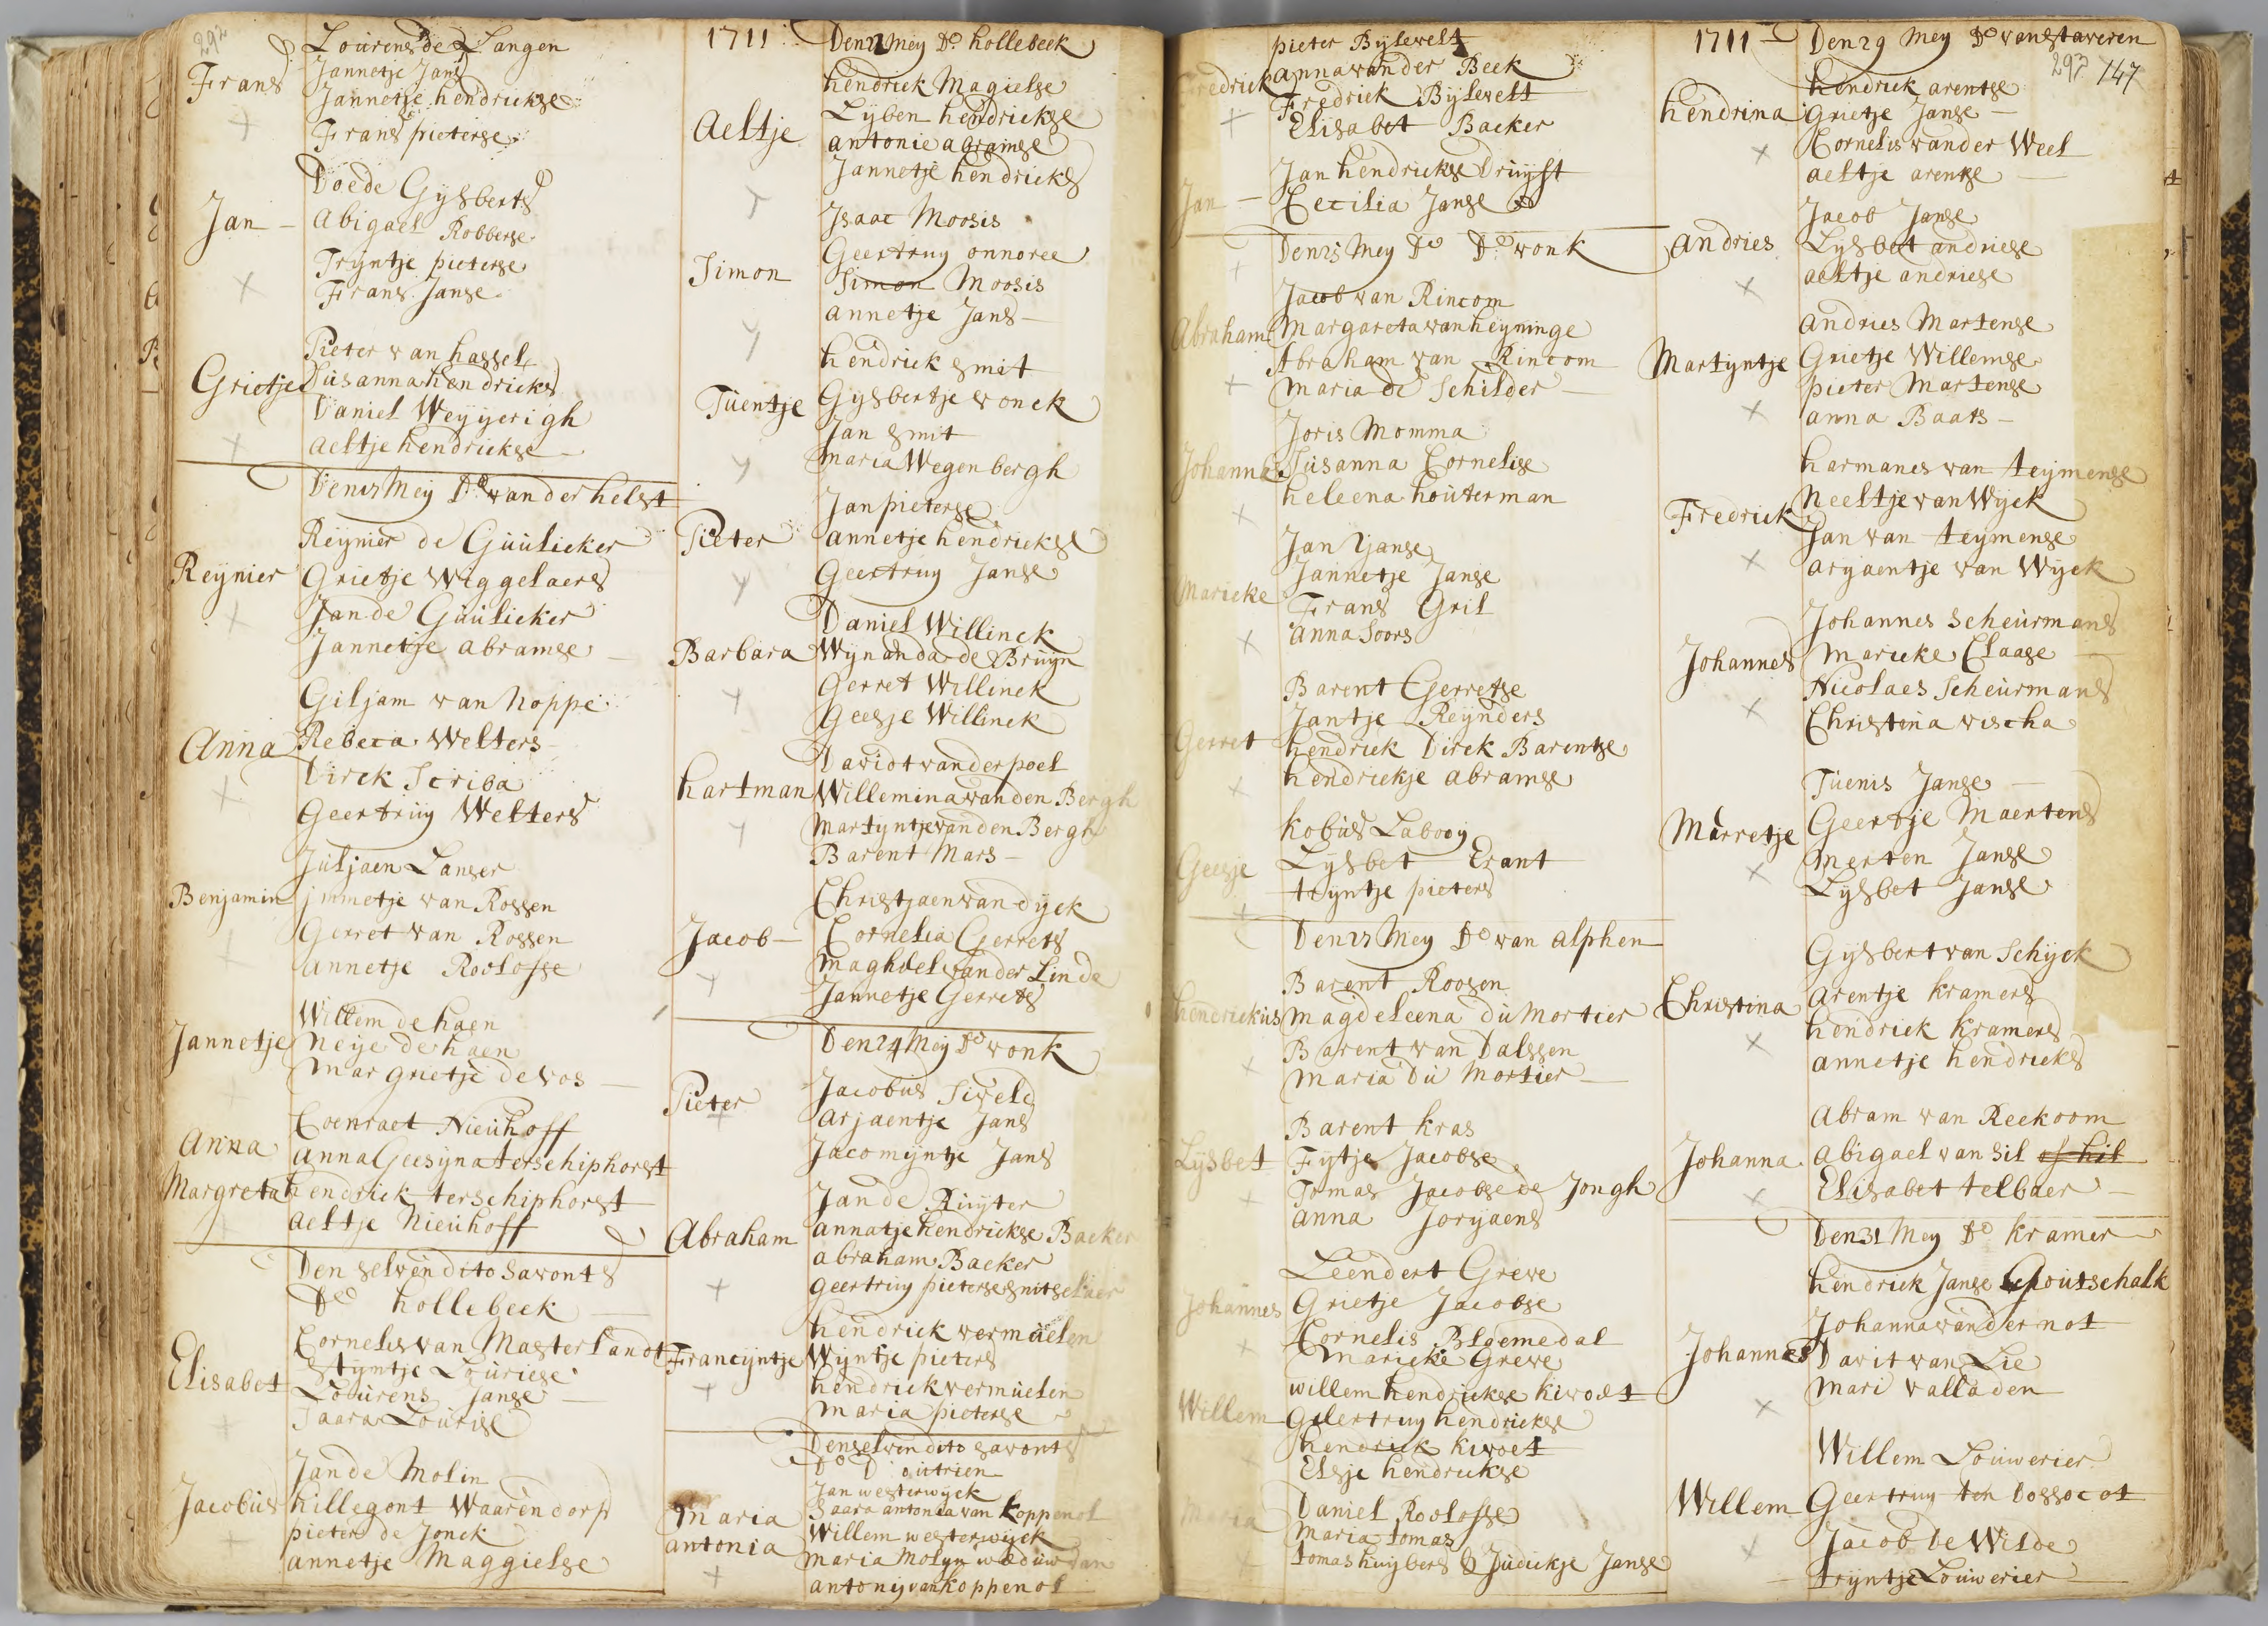 292
Lourens de Langen
Frans Jannetje Jans
Jannetje hendrickse
Frans pieterse
Doede Gysberts
Jan - Abigael Robberse
Tryntje pieterse
Frans Janse
Pieter van hassel
Grietje Susanna hendricks
Daniel Weyyerigh
Aeltje hendrickse
Den 17 Mey Do vander helst
Reynier de Guulicker
Reynier Grietje Wiggelaers
Jan de Guulicker
Jannetje abramse
Giljam van hoppe
Anna Rebeca Welters
Dirck Scriba
Geertruy Welters
Juljaen Langer
Benjamin jmmetje van Rossen
Gerret van Rossen
annetje Roelofse
Willem de haen
Jannetje Neije de haen
Margrietje de vos
Coenraet Nieuhoff
Anna anna Geesyna terschiphorst
Margreta hendrick terschiphorst
aeltje Nieuhoff
Den selven dito savonts
Do hollebeek
Cornelis van Masterlandt
Elisabet Styntje Louriese
Lourens Janse
Saara Lourise
Jan de Molin
Jacobus hillegont Waarendorp
pieter de Jonck
annetje Maggielse
1711 Den 22 Mey Do hollebeek
hendrick Magielse
Aeltje Lyben hendrickse
antonie agramse
Jannetje hendricks
Isaac Moosis
Geertruy onnoree
Simon Simon Moosis
annetje Jans
hendrick smit
Tuentje Gysbertje vonck
Jan smit
Maria Wegenbergh
Jan pieterse
Pieter annetje hendrickse
Geertruy Janse
Daniel Willinck
Barbara Wynanda de Bruyn
Gerret Willinck
Geesje Willinck
David vander poel
hartman Willemina van den Bergh
Martyntje van den Bergh
Barent Mars
Christjaen van dyck
Jacob Cornelia Gerrets
Maghdel vander Linde
Jannetje Gerrets
Den 24 Mey Do vonk
Jacobus Sivels
Pieter arjaentje Jans
Jacomyntje Jans
Jan de Ruyter
Abraham annatje hendrickse Backer
abraham Backer
geertruy pieterse snitselaer
hendrick vermuelen
Francyntje Wyntje pieters
hendrick vermuelen
Maria pieterse
Den selven dito savonts
Do D outrien
Jan westerwyck
Maria Saara antonia van koppenol
Willem westerwyck
antonia Maria Molyn weduw van
antony van koppenol
pieter Bylevelt
Fredrick anna vander Beek
Fredrick Bylevelt
Elisabet Backer
Jan hendrickse Druyft
Jan - Cecilia Janse
Den 25 Mey Do Do vonk
Jacob van Rincom
Abraham Margareta van heyninge
Abraham van Rincom
Maria de Schilder
Joris Momma
Johanna Susanna Cornelise
heleena houterman
Jan Janse
Marieke Jannetje Janse
Frans Gril
Anna Soors
Barent Gerretse
Jantje Reynders
Gerret hendrick Dirck Barentse
hendrickje abramse
Kobus Labooy
Geesje Lysbet Crant
tryntje pieters
Den 27 Mey Do van alphen
Barent Roosen
hendrickus Magdeleena du Mortier
Barent van Dalssen
Maria Du Mortier
Barent kras
Lysbet Fytje Jacobse
Tomas Jacobse de Jongh
Anna Joryaens
Leendert Greve
Johannes Grietje Jacobse
Cornelis Bloemedal
Marieke Greve
willem hendrickse kivoet
Willem Geertruy hendrickse
hendrick kivoet
Elsje hendrickse
Daniel Roelofse
Maria Maria tomas
tomas huybers & Judickje Janse
1711 Den 29 Mey Do van Staveren
297 147
hendrick arentse
hendrina Grietje Janse
Cornelis vander Weel
aeltje arentse
Jacob Janse
Andries Lysbet andriese
aeltje andriese
Andries Martense
Martyntje Grietje Willemse
pieter Martense
anna Baats
harmanes van teymense
Fredrick Neeltje van Wyck
Jan van teymense
aryaentje van Wyck
Johannes Scheurmans
Johannes Marieke Claase
Nicolaes Scheurmans
Christina vischa
Tuenis Janse
Marretje Geertje Maertens
Merten Janse
Lysbet Janse
Gysbert van Schyck
Christina Arentje kramers
hendrick kramers
annetje hendricks
Abram van Reekoom
Johanna abigael van Sil of hil
Elisabet telbaer
Den 31 Mey Do kramer
hendrick Janse Goutschalk
Johanna vander not
Johannes Davit van Lie
Mari valladen
Willem Louwerier
Willem Geertruy ten Dossocot
Jacob de Wilde
tryntje Louwerier